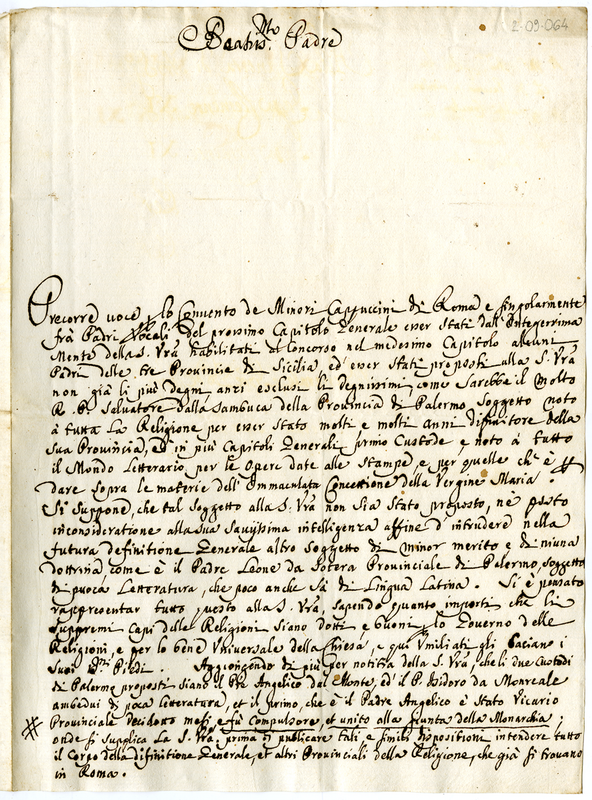 2-09-064
Beatis.mo Padre
Precorre voce p lo Convento de Minori Cappuccini di Roma e singolarmente
frà Padri Vocali del prossimo Capitolo Generale esser stati dall'Integerrima
Mente della S. Vrà habilitati al Concorso nel medesimo Capitolo alcuni
Padri delle tre Provincie di Sicilia, ed esser stati proposti alla S. Vrà
non già li più degni, anzi esclusi li degnissimi, come sarebbe il Molto
R. P. Salvatore dalla Sambuca della Provincia di Palermo, soggetto noto
à tutta la Religione per esser stato molti e molti anni difinitore della
sua Provincia, ed in più Capitoli Generali primo Custode, e noto à tutto
il Mondo Letterario per le opere date alle stampe, e per quelle ch'è p
dare sopra le materie dell'Immaculata Concettione della Vergine Maria.
Si suppone, che tal soggetto alla S. Vrà non sia stato proposto, nè posto
inconsideratione alla sua saviissima intelligenza affine d'intrudere nella
futura definitione Generale altro soggetto di minor merito e di niuna
dottrina come è il Padre Leone da Sotera Provinciale di Palermo, soggetto
di puoca Letteratura, che poco anche sà di Lingua Latina. Si è pensato
rappresentar tutto questo alla S. Vrà, sapendo quanto importi che li
suppremi Capi delle Religioni siano dotti e buoni p lo Governo delle
Religioni, e per lo bene Universale della Chiesa, e quì umiliati gli baciano i
suoi Piedi. Aggiongendo di più per notitia della S. Vrà, che li due Custodi
di Palermo proposti siano il Pre Angelico dal Monte, ed il P. Isidoro da Monreale
ambedui di poca letteratura, et il primo, che è il Padre Angelico è stato Vicario
# Provinciale decidotto mesi, e fù Compulsore, et unito alla Giunta della Monarchia,
onde si supplica la S. Vrà prima di publicare tali, e simili dispositioni intendere tutto
il Corpo della difinitione Generale, et altri Provinciali della Religione, che già si trovano
in Roma.